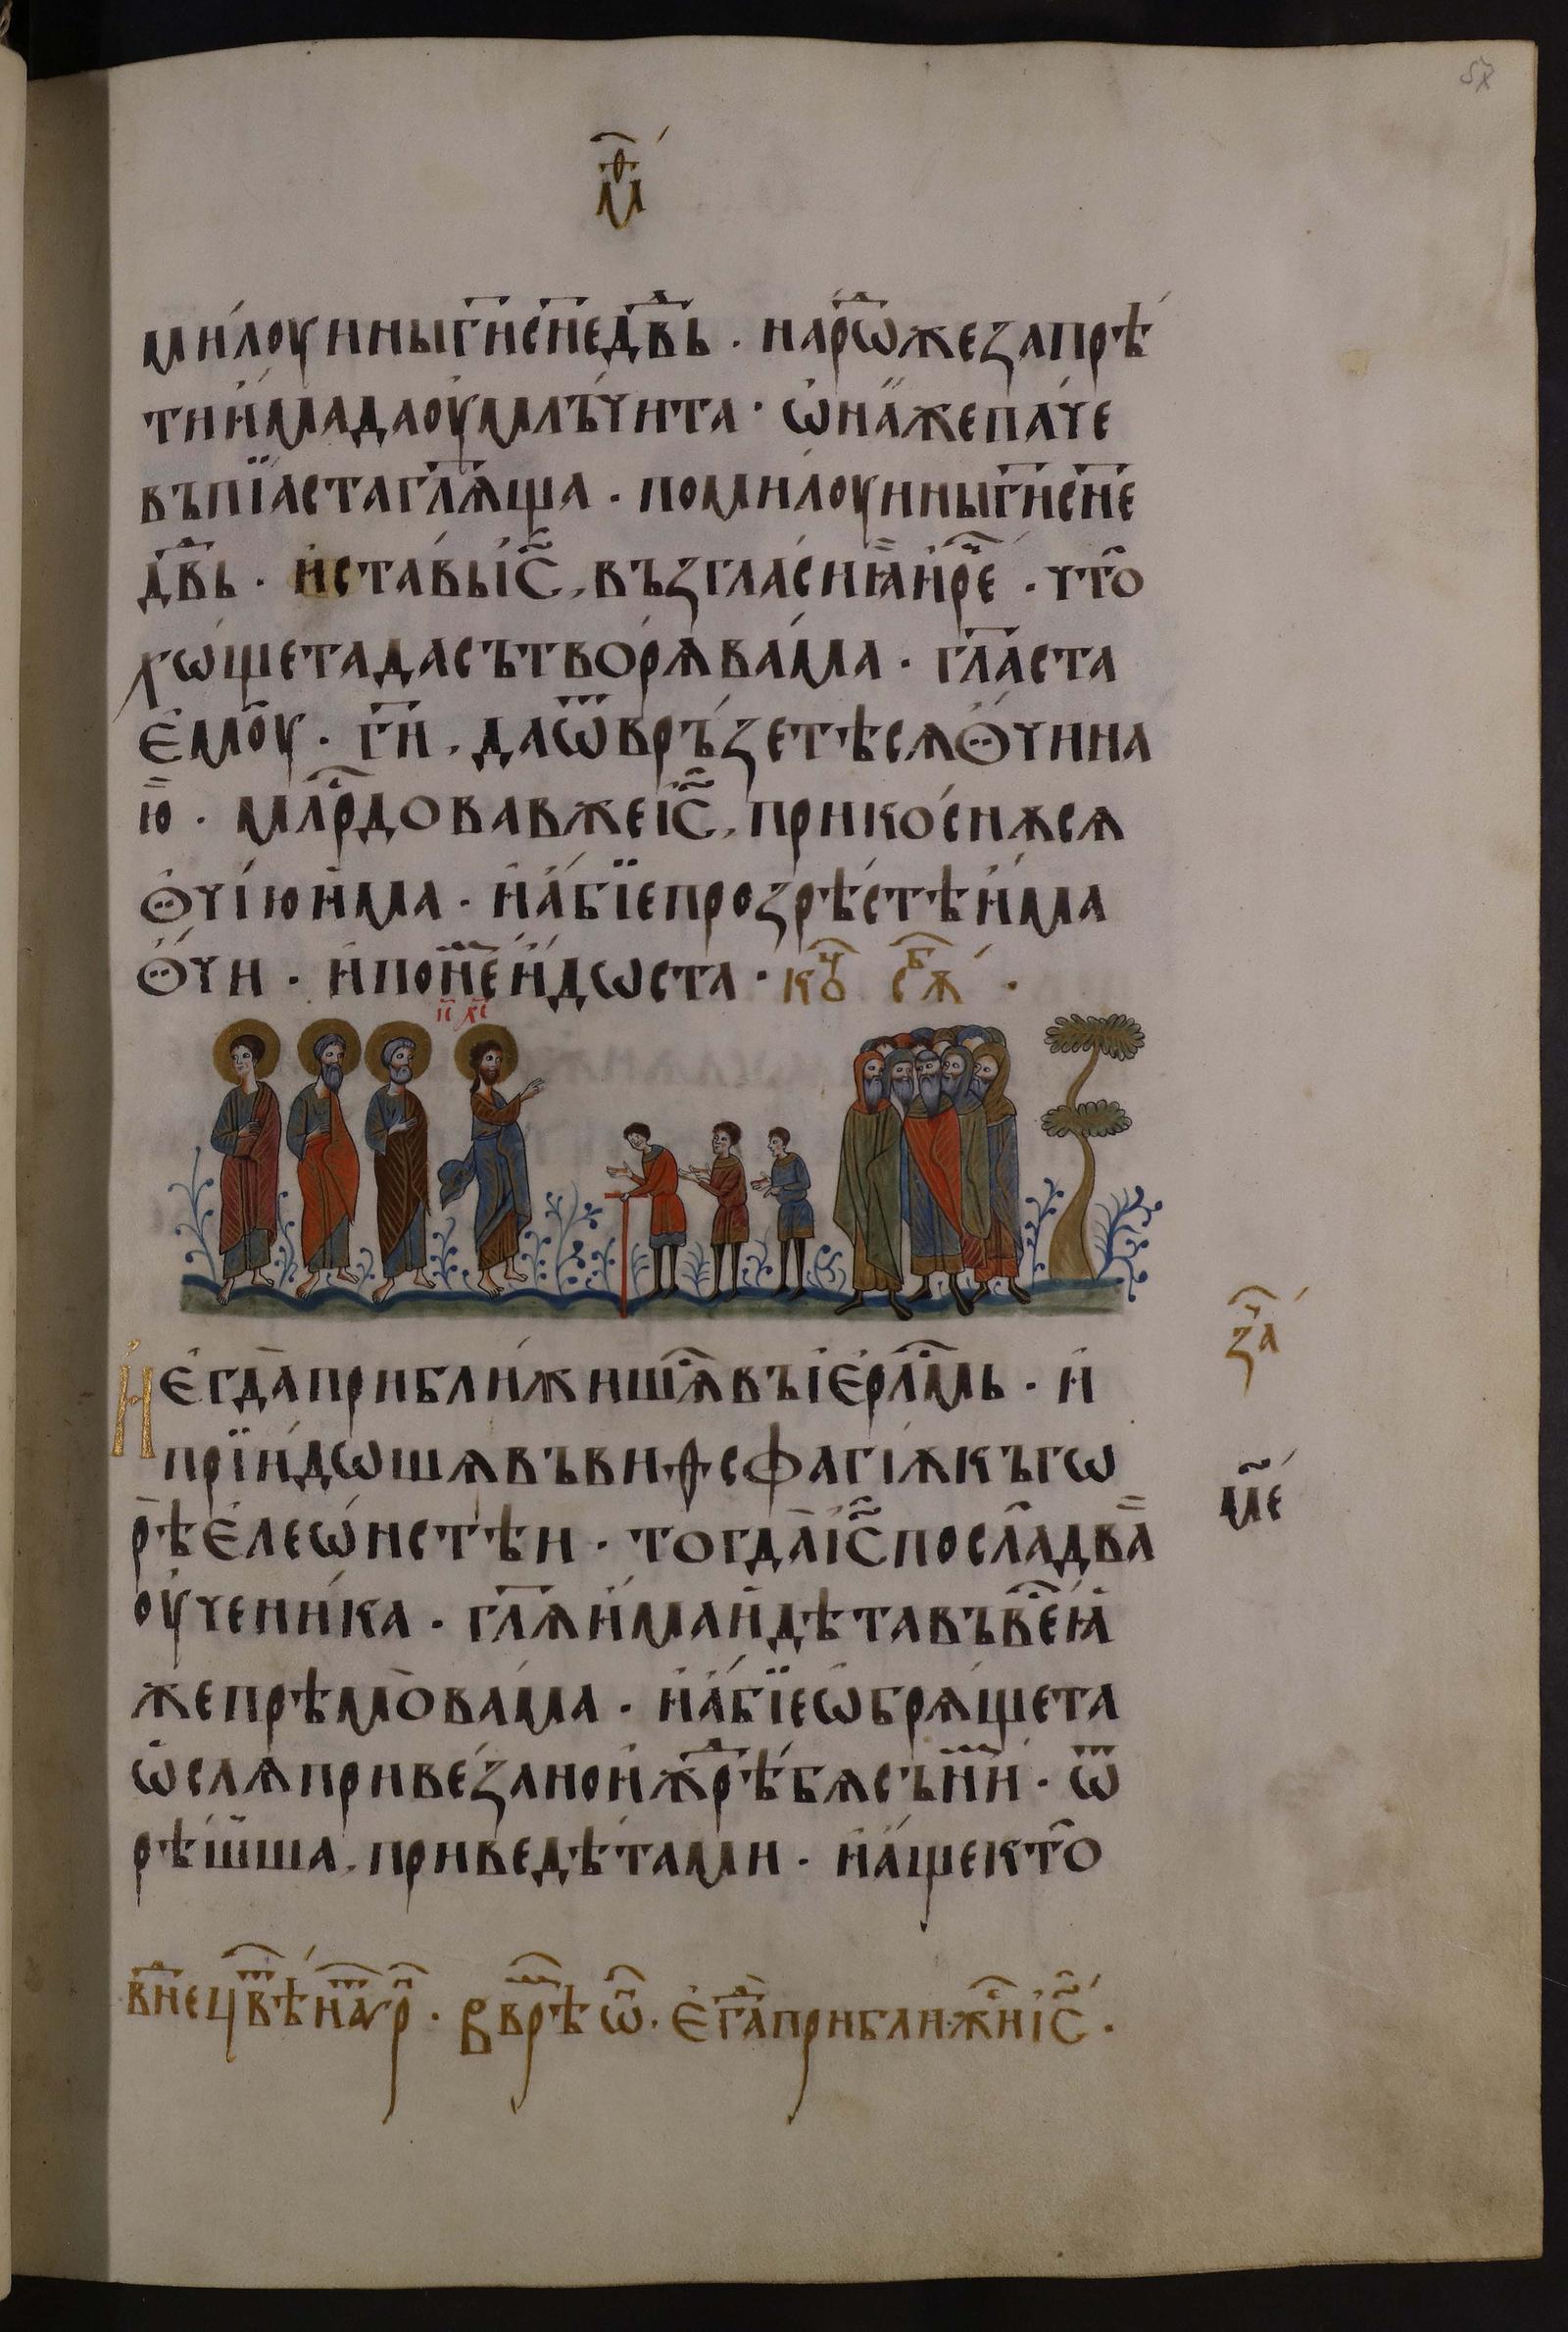 57
мѳ҃
ми́лоуи ны г҃и сн҃е дв҃ь · нарѡ҃же запрѣ́
ти и҆́ма да оу҆мль́чита · ѡ҆на́ же па́че
въпїа́ста гл҃ѧща · поми́лоуи ны г҃и сн҃е
дв҃ь · и҆ ста́вь і҆с҃, възгласи ꙗ҆̀ и҆ рⷱ҇е · что̑
хѡ́щета да сътворѧ̀ ва́ма · гл҃аста
є҆мо̑у · г҃и, да ѿврь́зетѣсѧ ѻ҆́чи на
ю҆̀ · млⷭ҇рдовав же і҆с҃, прико́снѫсѧ
ѻ҆чі́ю и҆̀ма · и҆ а҆́бїе прозрѣ́стѣ и҆́ма
ѻ҆́чи · и҆ по не́мь и҆́дѡста · коⷰ҇ сѫⷠ҇ ·
і҃с х҃с
И҆ є҆гда̀ прибли́жишѧⷭ҇ въ і҆є҆рⷭ҇лмь · и҆
прїи́дѡшѧ въ виѳсфагі́ѫ къ гѡ
рѣ̀ є҆леѡ́нстѣи · тогда̀ і҆с҃ посла̑ два̀
оу҆чени́ка · гл҃ѧ и҆́ма и҆дѣ́та въ ве́сь ꙗ҆̀
же прѣ́мо ва́ма · и҆ а҆́бїе ѡ҆брѧ́щета
ѡ҆слѧ̀ приве́зано и҆ жрѣ́бѧ съ ни́мь · ѿ
рѣ́шша, приведѣ́та ми · и҆ а҆́ще кто̑
за҃ч
м҃е
вⷩ҇ нецвѣтнаꙗ р · в врѣ ѡ҆́. є҆гⷣа̀ приближи і҆с҃ ·